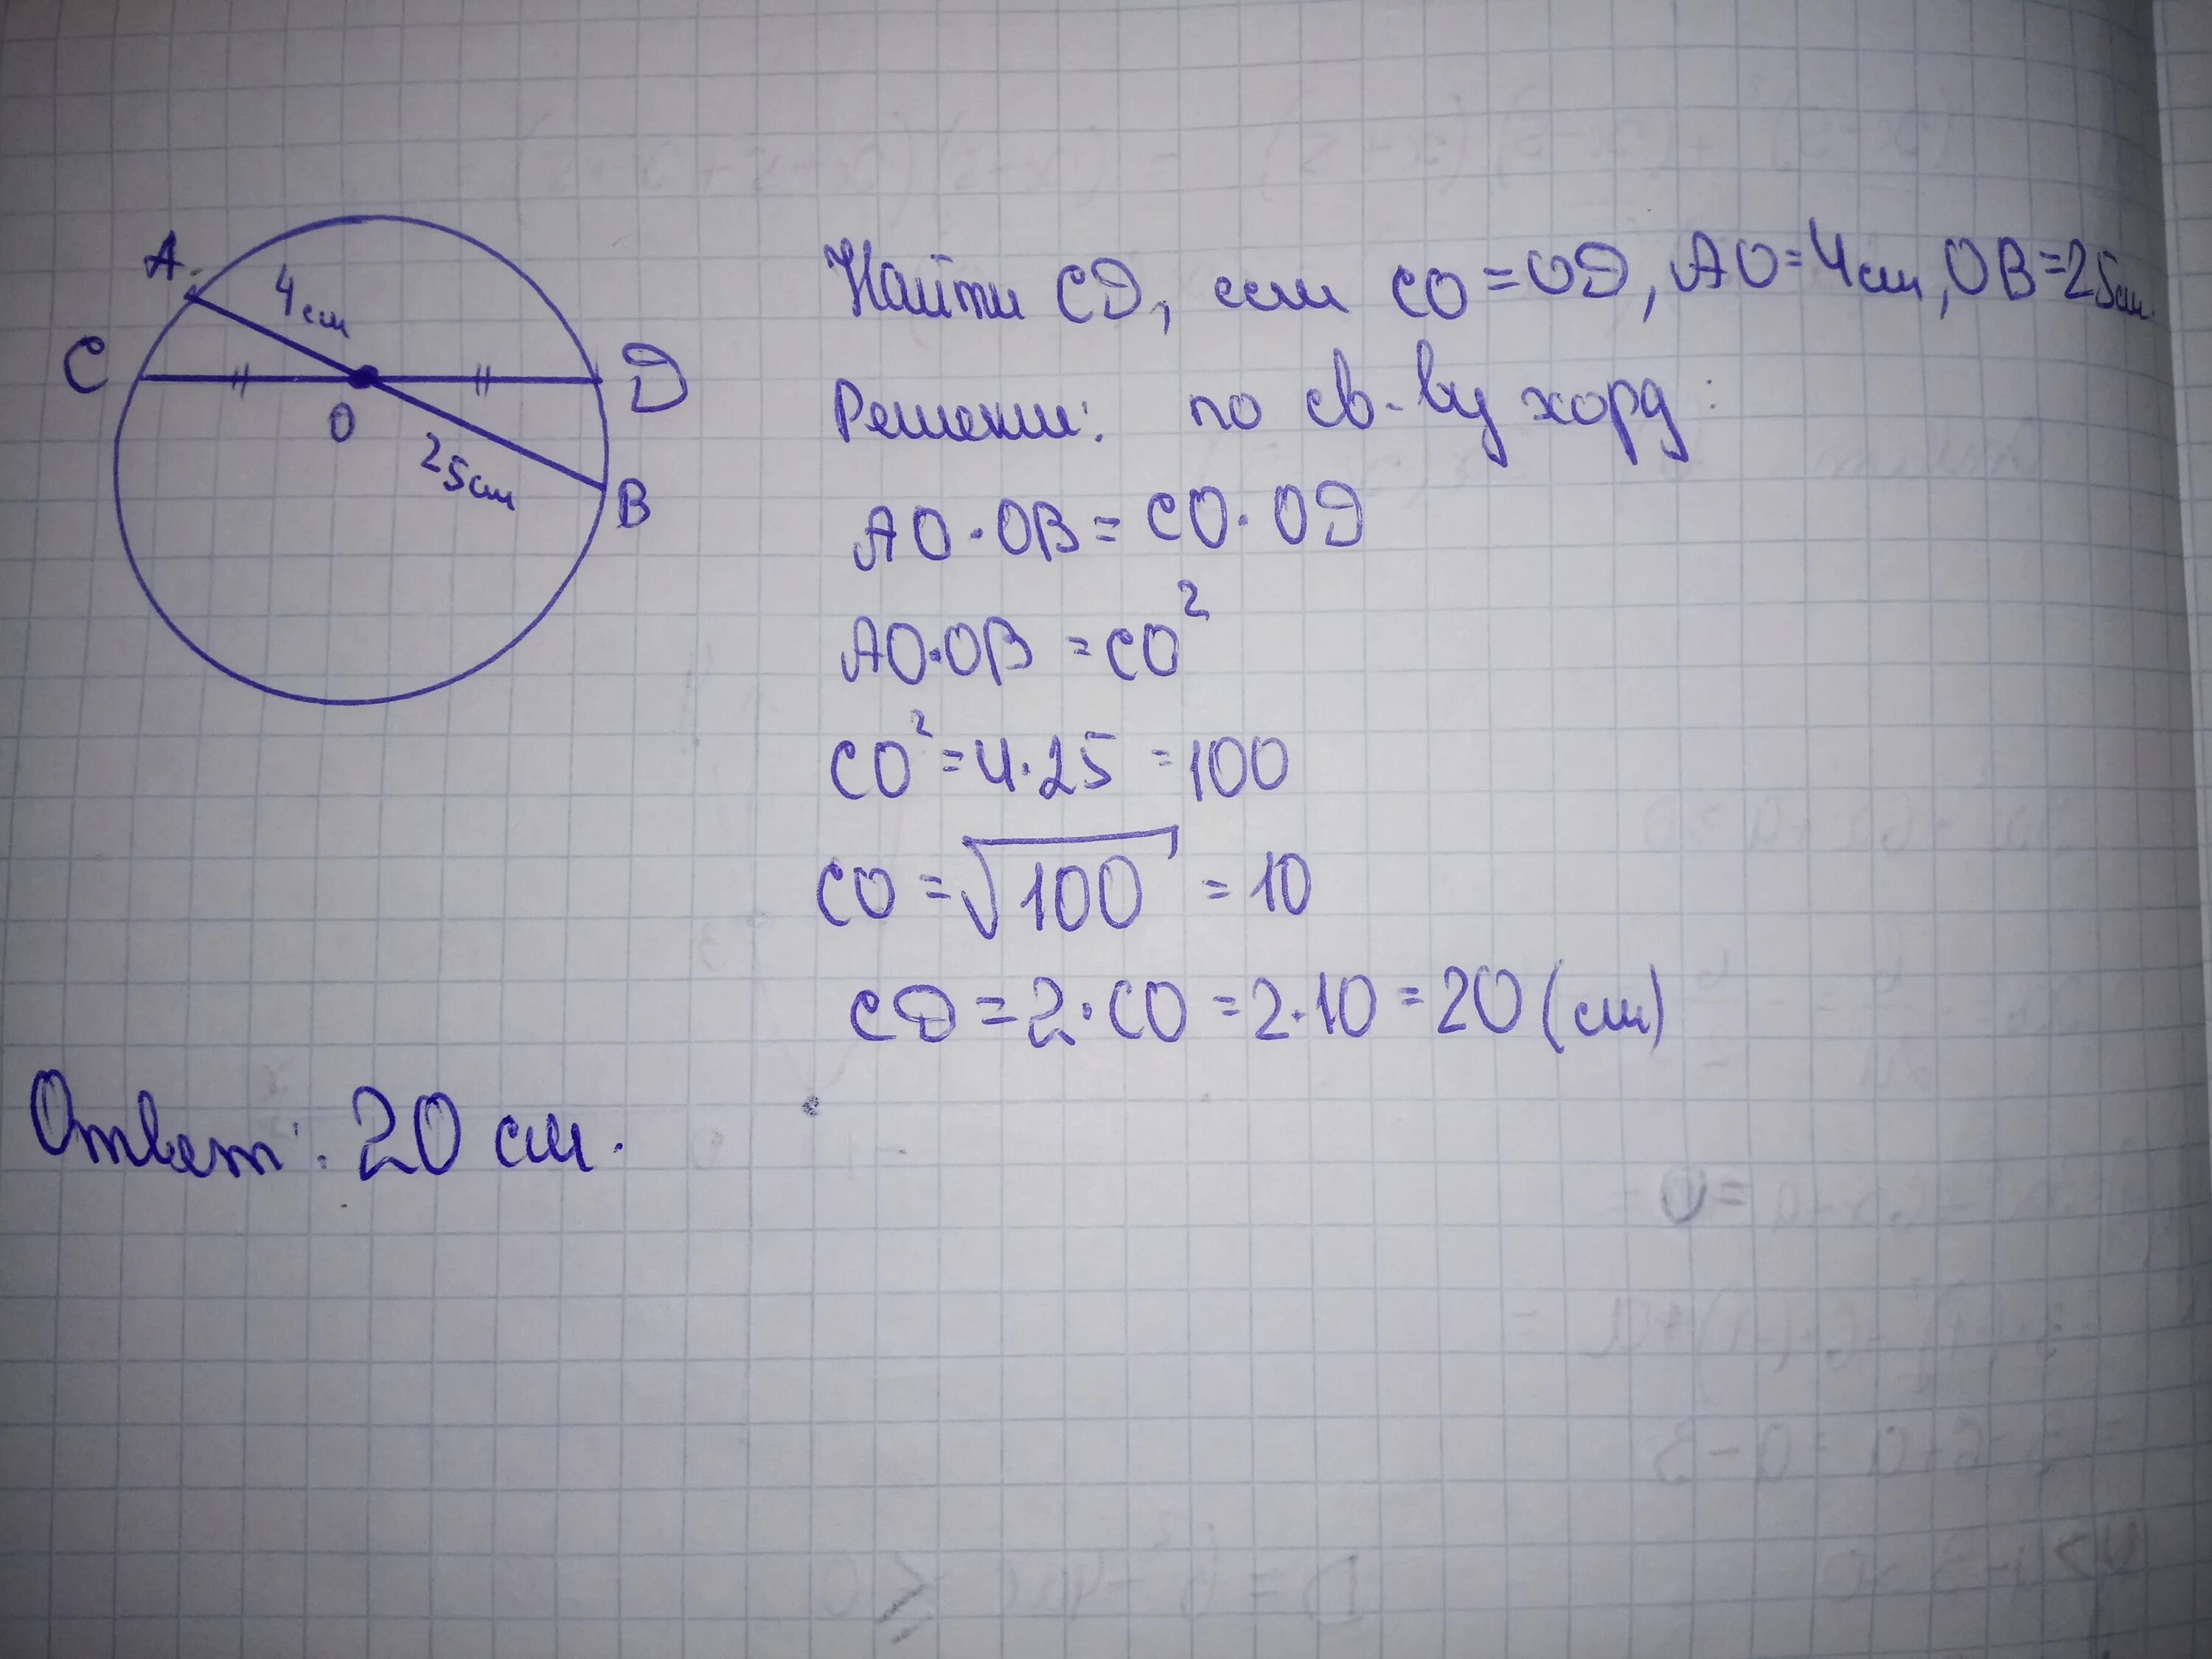 A
4см
C
D
O
25см
B
Найти CD, если CO=OD, AO=4см, OB=25см.
Решение: по св-ву хорд:
AO·OB=CO·OD
AO·OB=CO²
CO²=4·25=100
CO=√100=10
CD=2·CO=2·10=20(см)
Ответ: 20 см.